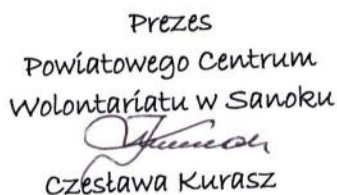 Prezes
Powiatowego Centrum
Wolontariatu w Sanoku
Czesława Kurasz